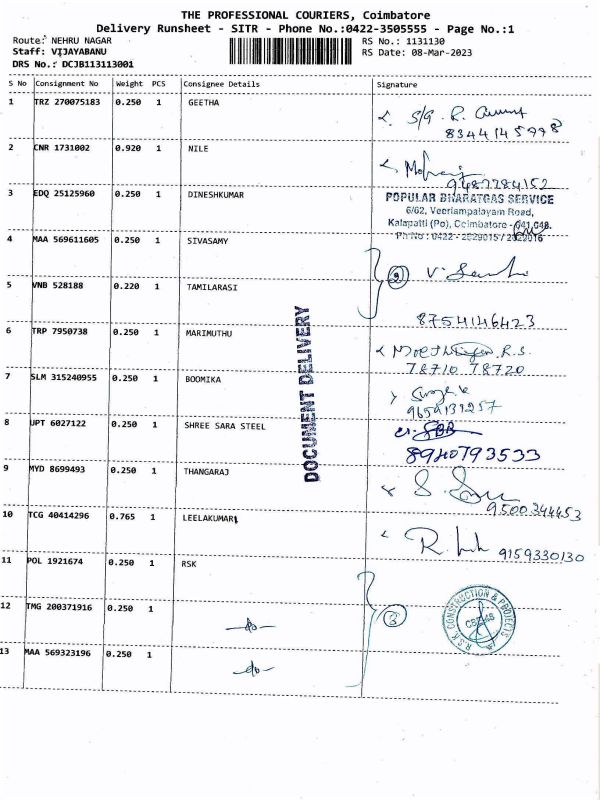 THE PROFESSIONAL COURIERS, Coimbatore
Delivery Runsheet - SITR - Phone No.:0422-3505555 - Page No.:1
Route: NEHRU NAGAR
RS No.: 1131130
Staff: VIJAYABANU
RS Date: 08-Mar-2023
DRS No.: DCJB113113001
S No Consignment No Weight PCS Consignee Details Signature
1 TRZ 270075183 0.250 1 GEETHA
8344145998
2 CNR 1731002 0.920 1 NILE
9487784152
3 EDQ 25125960 0.250 1 DINESHKUMAR
POPULAR BHARATGAS SERVICE
6/62, Veeriampalayam Road,
Kalapatti (Po), Coimbatore - 641 048.
Ph No : 0422 - 2629015 / 2629016
4 MAA 569611605 0.250 1 SIVASAMY
5 VNB 528188 0.220 1 TAMILARASI
8754146423
6 TRP 7950738 0.250 1 MARIMUTHU
78710 78720
7 SLM 315240955 0.250 1 BOOMIKA
9659131257
8 UPT 6027122 0.250 1 SHREE SARA STEEL
8940793533
9 MYD 8699493 0.250 1 THANGARAJ
9500344453
10 TCG 40414296 0.765 1 LEELAKUMARI
9159330130
11 POL 1921674 0.250 1 RSK
12 TMG 200371916 0.250 1 -do-
3
13 MAA 569323196 0.250 1 -do-
DOCUMENT DELIVERY
R.S.K CONSTRUCTION & PROJECTS